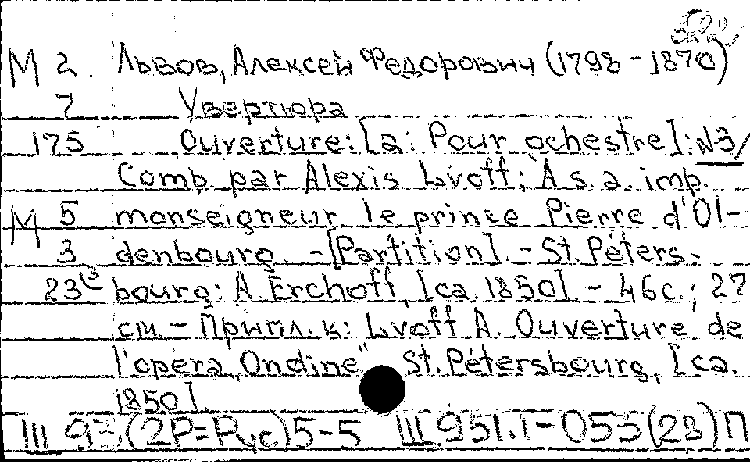 М 2 Львов, Алексей Федорович (1798-1870)
7 Увертюра
175 Ouverture: [a: Pour ochestre]: N3/
Comp. par Alexis Lvoff; A s. a. imp.
М 5 monseigneur le prince Pierre d'Ol-
3 denbourg. - [Partition]. - St. Peters-
23 bourg: A. Erchoff, [ca. 1850]. - 46 с.; 27
см. - Припл. к: Lvoff A. Ouverture de
l'opera „Ondine". St. Pétersbourg, [ca.
1850].
III 93(2Р=Рус)5-5 III 951.1-055(28)П